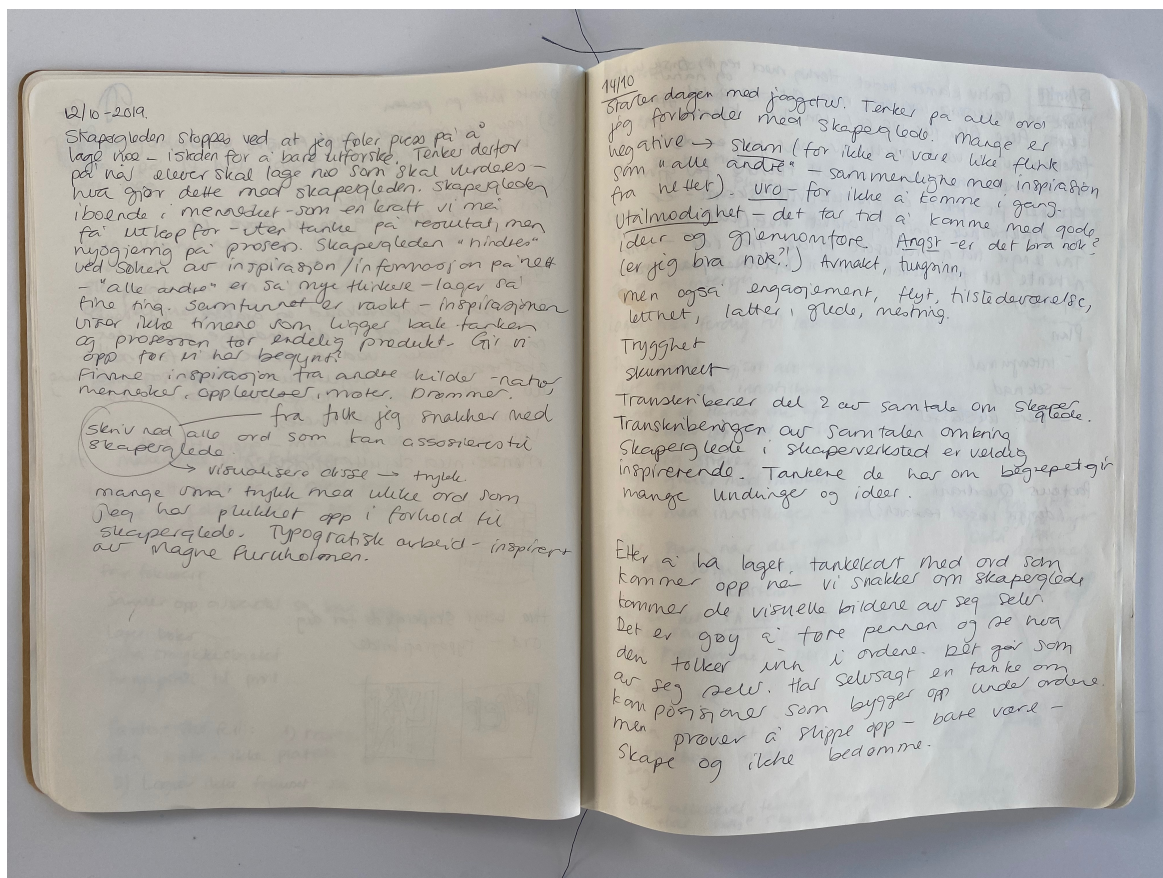 12/10-2019.
Skapergleden stoppes ved at jeg føler press på å
lage noe – isteden for å bare utforske. Tenker derfor
på når elever skal lage noe som skal vurderes –
hva gjør dette med skapergleden. Skapergleden
iboende i mennesket – som en kraft vi må
få utløp for – uten tanke på resultat, men
nysgjerrig på prosess. Skapergleden "hindres"
ved søken av inspirasjon/informasjon på nett
– "alle andre" er så mye flinkere – lager så
fine ting. Samfunnet er raskt – inspirasjonen
viser ikke timene som ligger bak tanken
og prosessen før endelig produkt. Gir vi
opp før vi har begynt?
Finne inspirasjon fra andre kilder – natur,
mennesker, opplevelser, møter. Drømmer.
fra folk jeg snakker med
skriv ned alle ord som kan assosieres til
skaperglede.
→ visualisere disse → trykk
mange små trykk med ulike ord som
jeg har plukket opp i forhold til
skaperglede. Typografisk arbeid – inspirert
av Magne Furuholmen.
14/10
Starter dagen med joggetur. Tenker på alle ord
jeg forbinder med skaperglede. Mange er
negative → skam (for ikke å være like flink
som "alle andre" – sammenligne med inspirasjon
fra nettet). Uro – for ikke å komme i gang.
Utålmodighet – det tar tid å komme med gode
ideer og gjennomføre. Angst – er det bra nok?
(er jeg bra nok?!) Avmakt, tungsinn,
men også engasjement, flyt, tilstedeværelse,
letthet, latter, glede, mestring.
Trygghet
skummelt
Transkriberer del 2 av samtale om skaper
glede.
Transkriberingen av samtalen omkring
skaperglede i skaperverksted er veldig
inspirerende. Tankene de har om begrepet gir
mange undringer og ideer.
Etter å ha laget tankekart med ord som
kommer opp når vi snakker om skaperglede
kommer de visuelle bildene av seg selv.
Det er gøy å føre pennen og se hva
den tolker inn i ordene. Det går som
av seg selv. Har selvsagt en tanke om
komposisjoner som bygger opp under ordene.
men prøver å slippe opp – bare være –
skape og ikke bedømme.